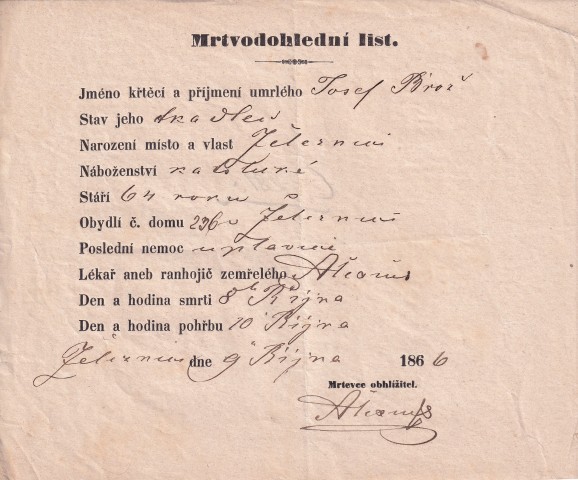 Mrtvodohlední list.
Jméno křtěcí a příjmení umrlého Josef Brož
Stav jeho tkadlec
Narození místo a vlast Železnic
Náboženství katolické
Stáří 64 roků
Obydlí č. domu 236 v Železnici
Poslední nemoc
Lékař aneb ranhojič zemřelého
Den a hodina smrti 8ho Října
Den a hodina pohřbu 10 Října
Železnice dne 9 Října 1866
Mrtevce obhlížitel.